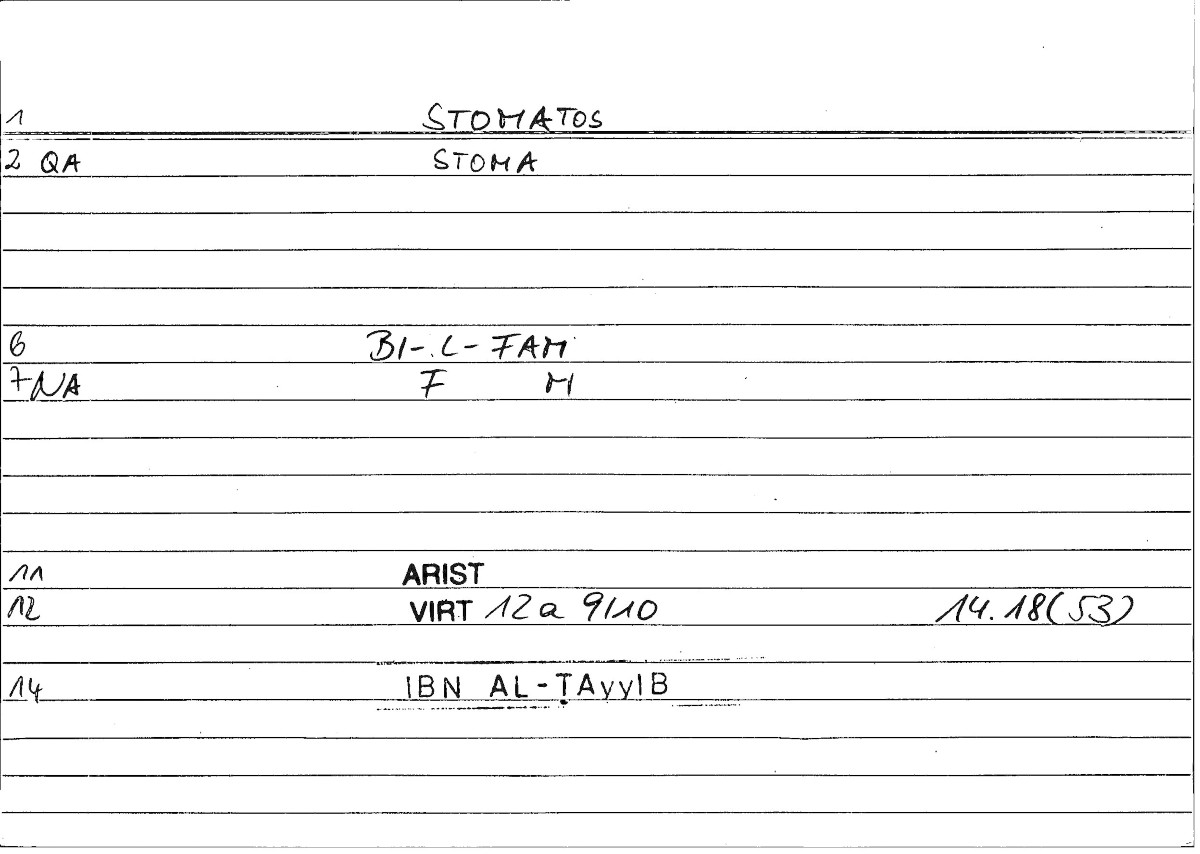 1 STOMATOS
2 QA STOMA
6 BI-L-FAM
7 NA F M
11 ARIST
12 VIRT 12a 9/10 14.18(53)
14 IBN AL-ṬAyyIB